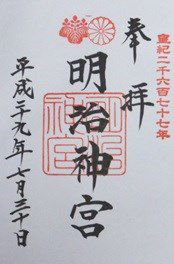 皇紀二千六百七十七年
奉拝
明治神宮
平成二十九年七月三十日
明治神宮